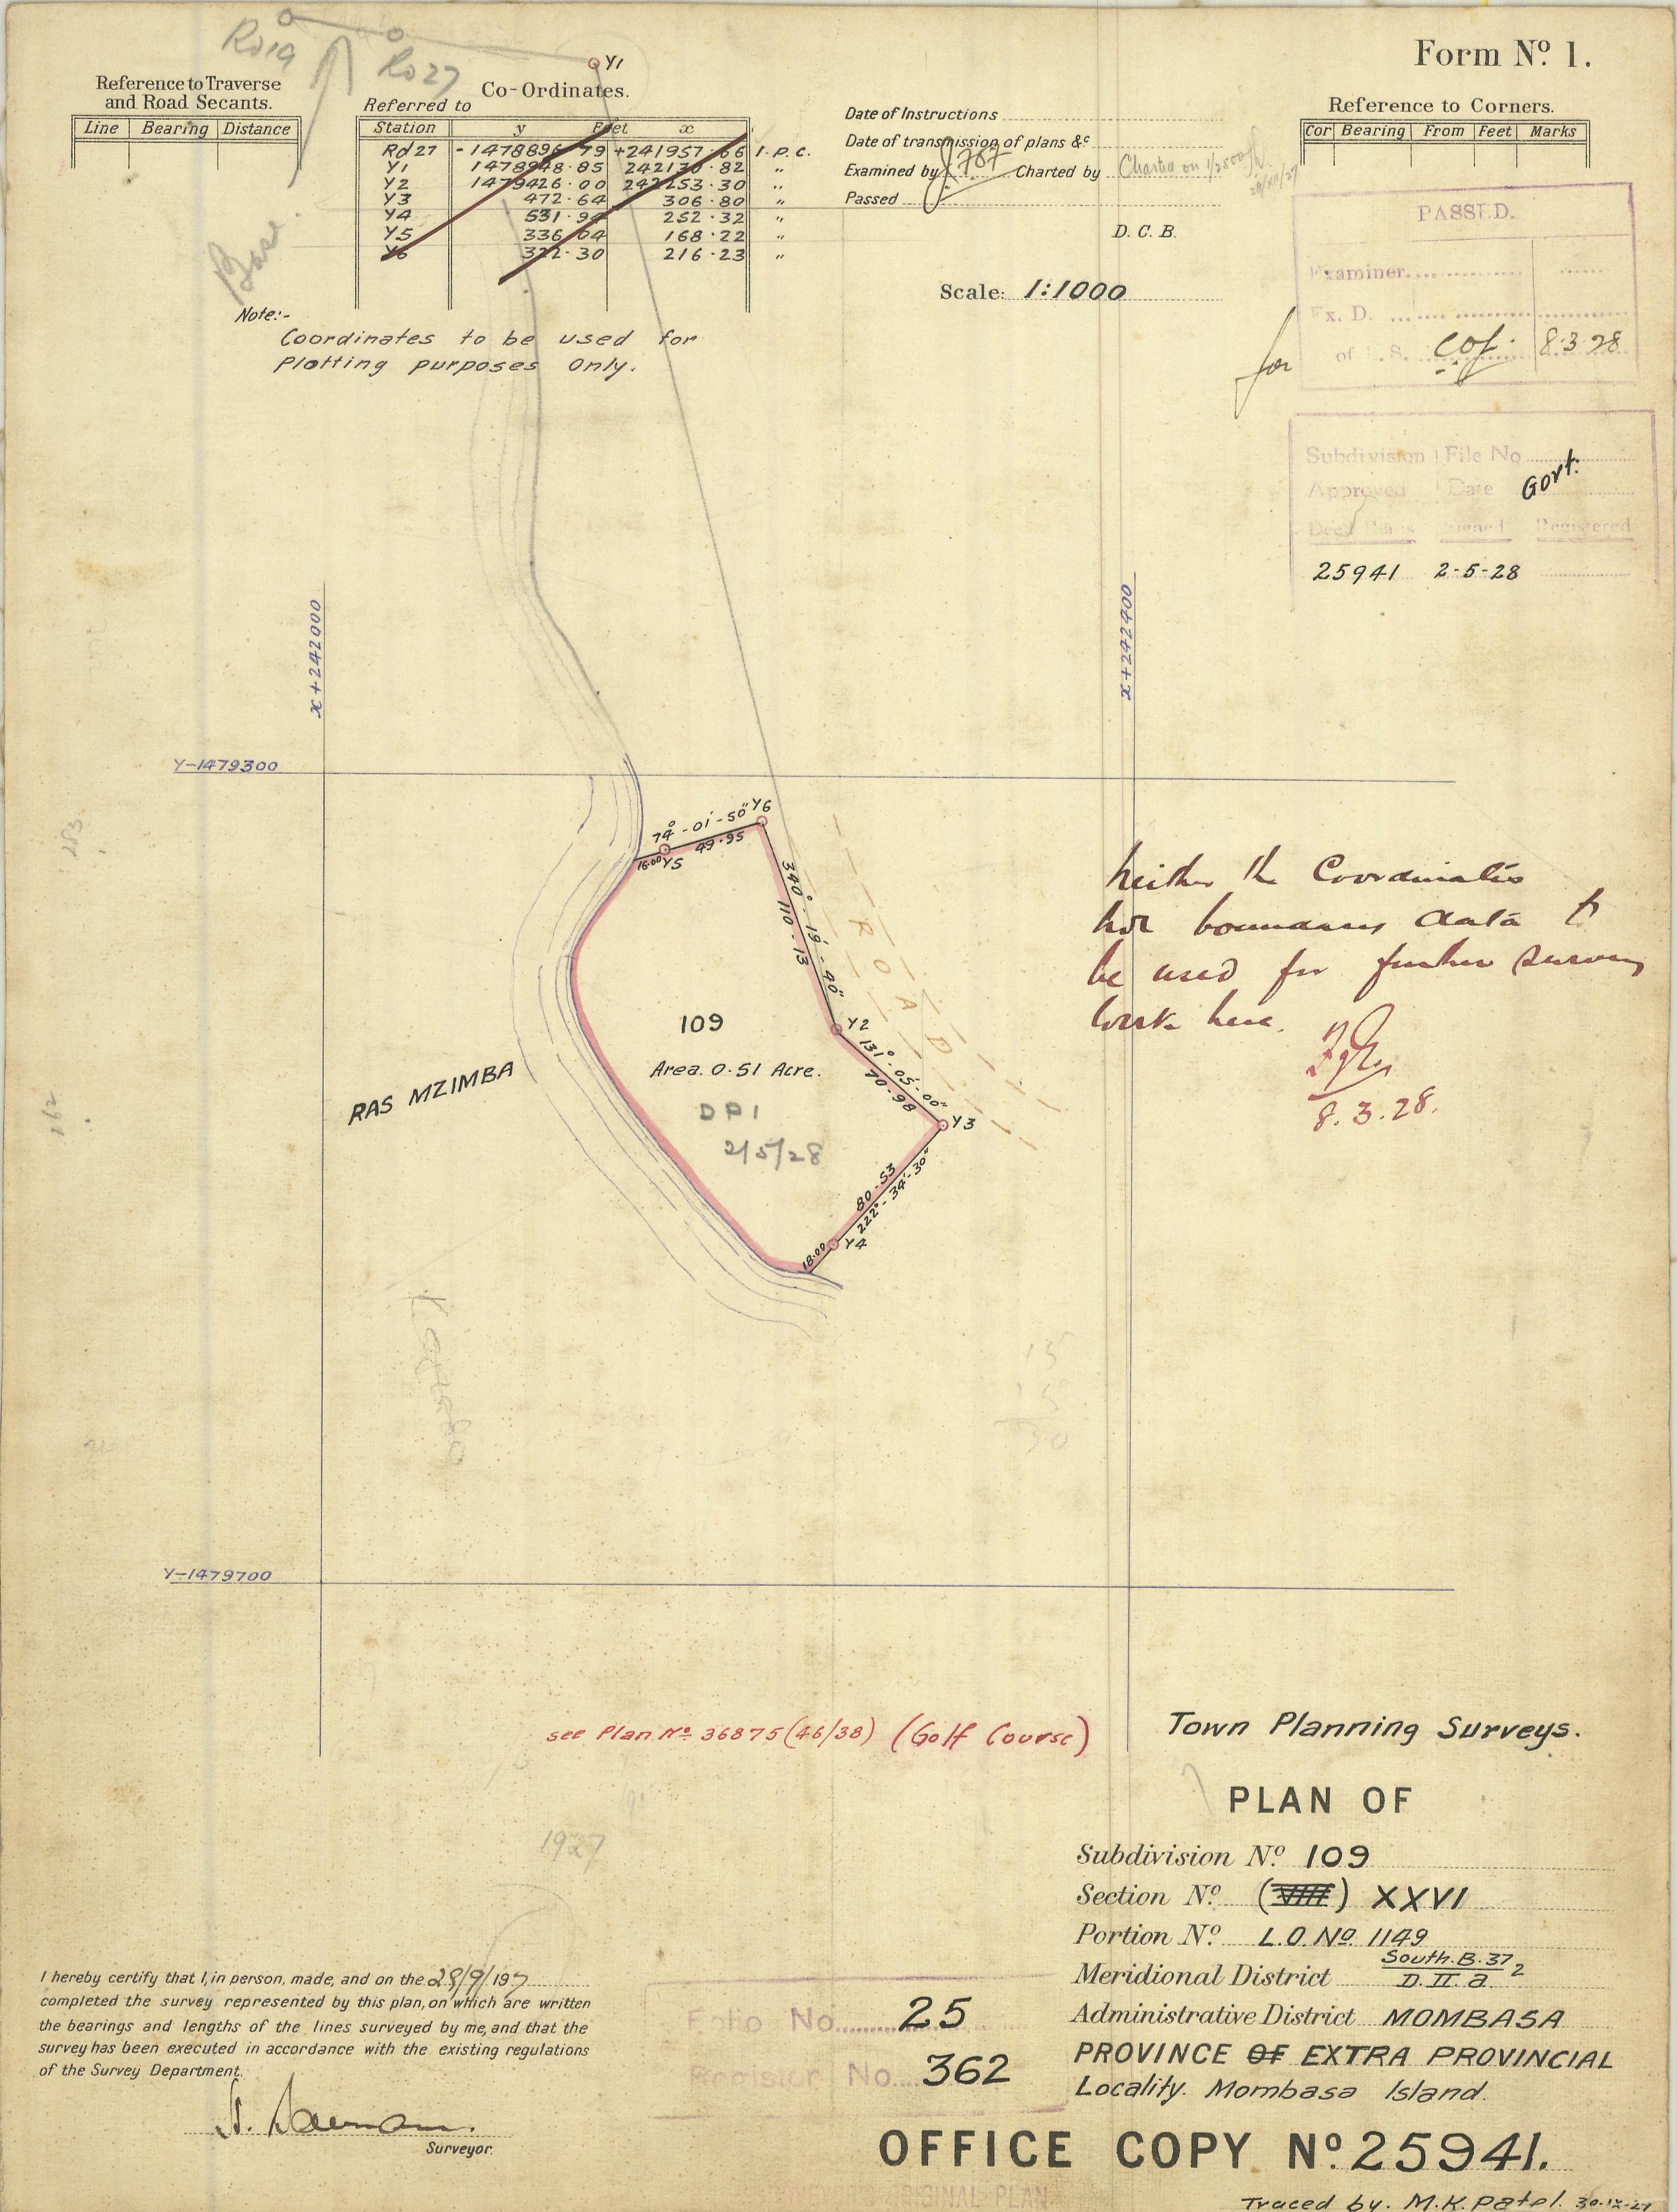 Form No. 1.
Rd 19
Rd 27
Y1
Reference to Traverse
and Road Secants.
Line Bearing Distance
Co-Ordinates.
Referred to
Station y Feet x
Rd 27 -1478896.79 +241957.66 I.P.C.
Y1 1478948.85 242130.82 "
Y2 1479426.00 242253.30 "
Y3 472.64 306.80 "
Y4 531.94 252.32 "
Y5 336.04 168.22 "
Y6 322.30 216.23 "
Base
Note:-
Coordinates to be used for
Plotting purposes only.
Date of Instructions
Date of transmission of plans &c
Examined by 787 Charted by Charted on 1/2500
Passed
D. C. B.
Scale: 1:1000
Reference to Corners.
Cor Bearing From Feet Marks
PASSED.
Examiner
Ex. D.
for of L.S. 8.3.28
Subdivision File No
Approved Date Govt.
Deed Plans Signed Registered
25941 2-5-28
x+242000
x+242400
Y-1479300
74°-01'-50" Y6
16.00 Y5 49.95
340°-19'-40"
110.13
ROAD
109
Area. 0.51 Acre.
DP1
2/5/28
RAS MZIMBA
Y2
131°-05'-00"
70.98
Y3
80.53
222°-34'-30"
18.00 Y4
Neither the Coordinates
nor boundary data to
be used for further survey
work here.
8.3.28.
Y-1479700
see Plan No. 36875 (46/38) (Golf Course)
1927
Town Planning Surveys.
PLAN OF
Subdivision No. 109
Section No. (VIII) XXVI
Portion No. L.O. No. 1149
Meridional District South.B.37 2
D. II. a
Administrative District MOMBASA
PROVINCE OF EXTRA PROVINCIAL
Locality. Mombasa Island.
I hereby certify that I, in person, made, and on the 28/9/1927
completed the survey represented by this plan, on which are written
the bearings and lengths of the lines surveyed by me, and that the
survey has been executed in accordance with the existing regulations
of the Survey Department.
Surveyor.
Folio No. 25
Register No. 362
OFFICE COPY No. 25941.
ORIGINAL PLAN
Traced by. M.K. Patel. 30.IX.27